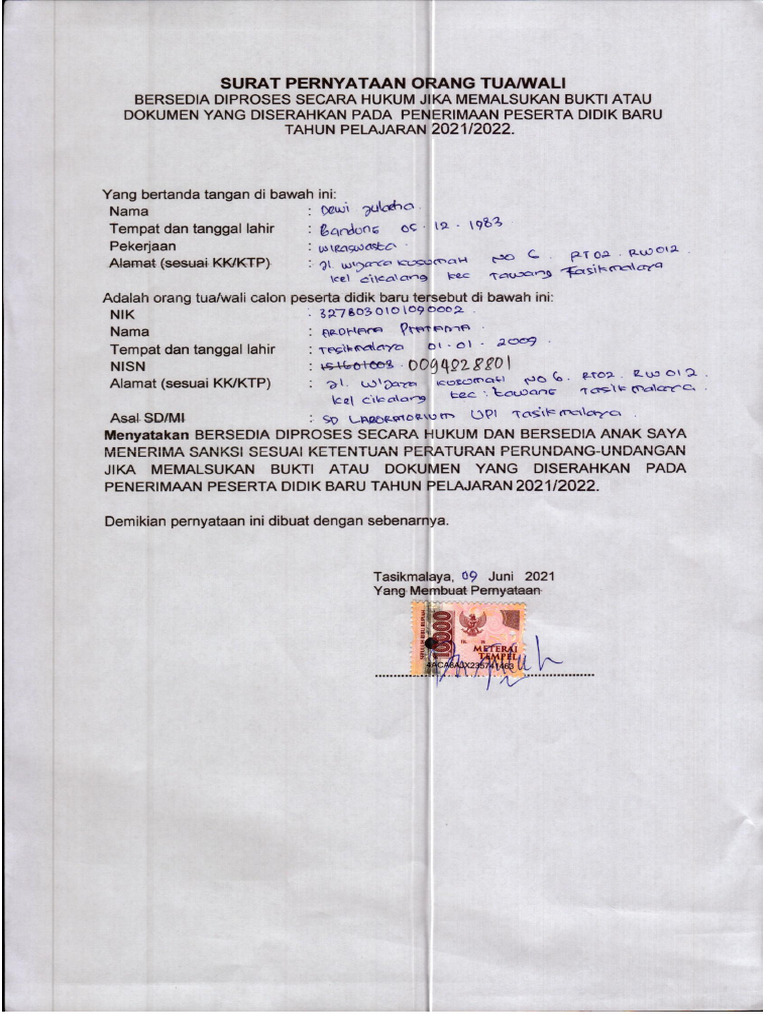 SURAT PERNYATAAN ORANG TUA/WALI
BERSEDIA DIPROSES SECARA HUKUM JIKA MEMALSUKAN BUKTI ATAU
DOKUMEN YANG DISERAHKAN PADA PENERIMAAN PESERTA DIDIK BARU
TAHUN PELAJARAN 2021/2022.
Yang bertanda tangan di bawah ini:
Nama : Dewi Julaeha.
Tempat dan tanggal lahir : Bandung 05-12-1983
Pekerjaan : wiraswasta.
Alamat (sesuai KK/KTP) : Jl. Wijaya Kusumah No 6. RT02. RW012.
kel cikalang kec Tawang Tasikmalaya
Adalah orang tua/wali calon peserta didik baru tersebut di bawah ini:
NIK : 3278030101090002.
Nama : ARDHANA PRATAMA.
Tempat dan tanggal lahir : Tasikmalaya 01-01-2009
NISN : 0094828801
Alamat (sesuai KK/KTP) : Jl. Wijaya Kusumah No 6. RT02. RW012.
kel cikalang kec: tawang Tasikmalaya.
Asal SD/MI : SD LABORATORIUM UPI Tasikmalaya.
Menyatakan BERSEDIA DIPROSES SECARA HUKUM DAN BERSEDIA ANAK SAYA
MENERIMA SANKSI SESUAI KETENTUAN PERATURAN PERUNDANG-UNDANGAN
JIKA MEMALSUKAN BUKTI ATAU DOKUMEN YANG DISERAHKAN PADA
PENERIMAAN PESERTA DIDIK BARU TAHUN PELAJARAN 2021/2022.
Demikian pernyataan ini dibuat dengan sebenarnya.
Tasikmalaya, 09 Juni 2021
Yang Membuat Pernyataan
10000
METERAI
TEMPEL